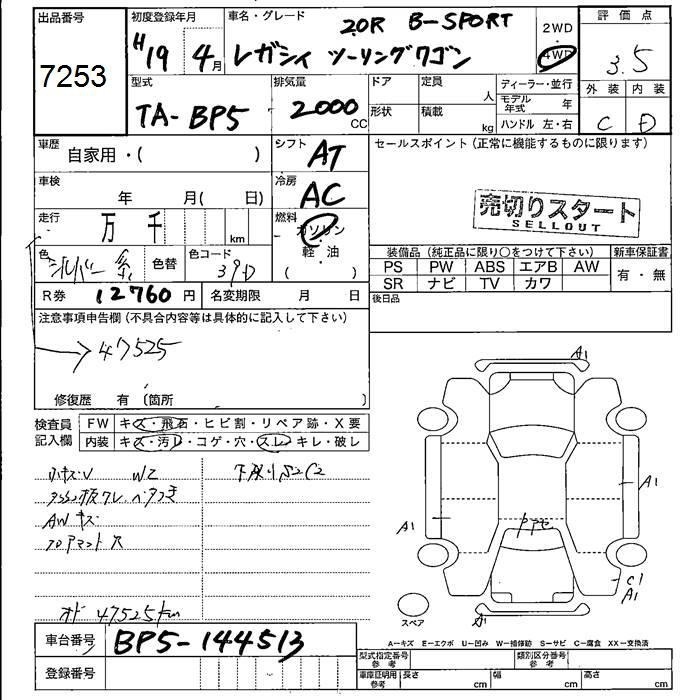 出品番号 初度登録年月 車名・グレード 2.0R B-SPORT 2WD 評価点
7253 H19年4月 レガシィ ツーリングワゴン 4WD 3.5
外装 内装
型式 排気量 ドア 定員 ディーラー・並行
TA-BP5 2000 CC 人 モデル年式 年 C D
形状 積載 kg ハンドル 左・右
車歴 自家用・( ) シフト AT セールスポイント(正常に機能するものに限ります)
車検 年 月( 日) 冷房 AC
売切りスタート
SELLOUT
走行 万 千 km 燃料 ガソリン
軽・油
( )
色 シルバー系 色替 色コード 39D
装備品(純正品に限り○をつけて下さい) 新車保証書
PS PW ABS エアB AW 有・無
SR ナビ TV カワ
R券 12760円 名変期限 月 日 後日品
注意事項申告欄(不具合内容等は具体的に記入して下さい)
47525
修復歴 有〔箇所 〕
検査員記入欄 FW キズ・飛石・ヒビ割・リペア跡・X要
内装 キズ・汚レ・コゲ・穴・スレ・キレ・破レ
小キズU W2 下廻りS2C2
AWキズ
フロアマット穴
オド 47525km
A1
A1
A1
C1
A1
スペア
A-キズ E-エクボ U-凹み W-補修跡 S-サビ C-腐食 XX-交換済
車台番号 BP5-144513
型式指定番号 参考 類別区分番号 参考
登録番号 車庫証明用 参考 長さ cm 幅 cm 高さ cm